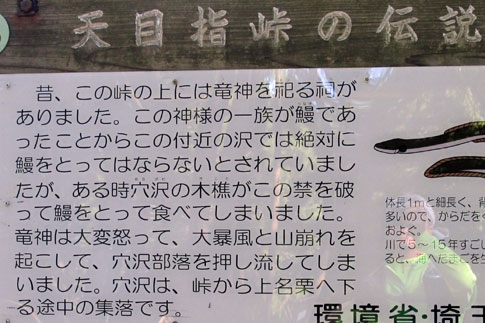 天目指峠の伝説
昔、この峠の上には竜神を祀る祠が
ありました。この神様の一族が鰻であ
ったことからこの付近の沢では絶対に
鰻をとってはならないとされていまし
たが、ある時穴沢の木樵がこの禁を破
って鰻をとって食べてしまいました。
竜神は大変怒って、大暴風と山崩れを
起こして、穴沢部落を押し流してしま
いました。穴沢は、峠から上名栗へ下
る途中の集落です。
体長1mと細長く、背
多いので、からだを
およぐ。
川で5～15年すごし
ると、海へたまごを生
環境省・埼玉